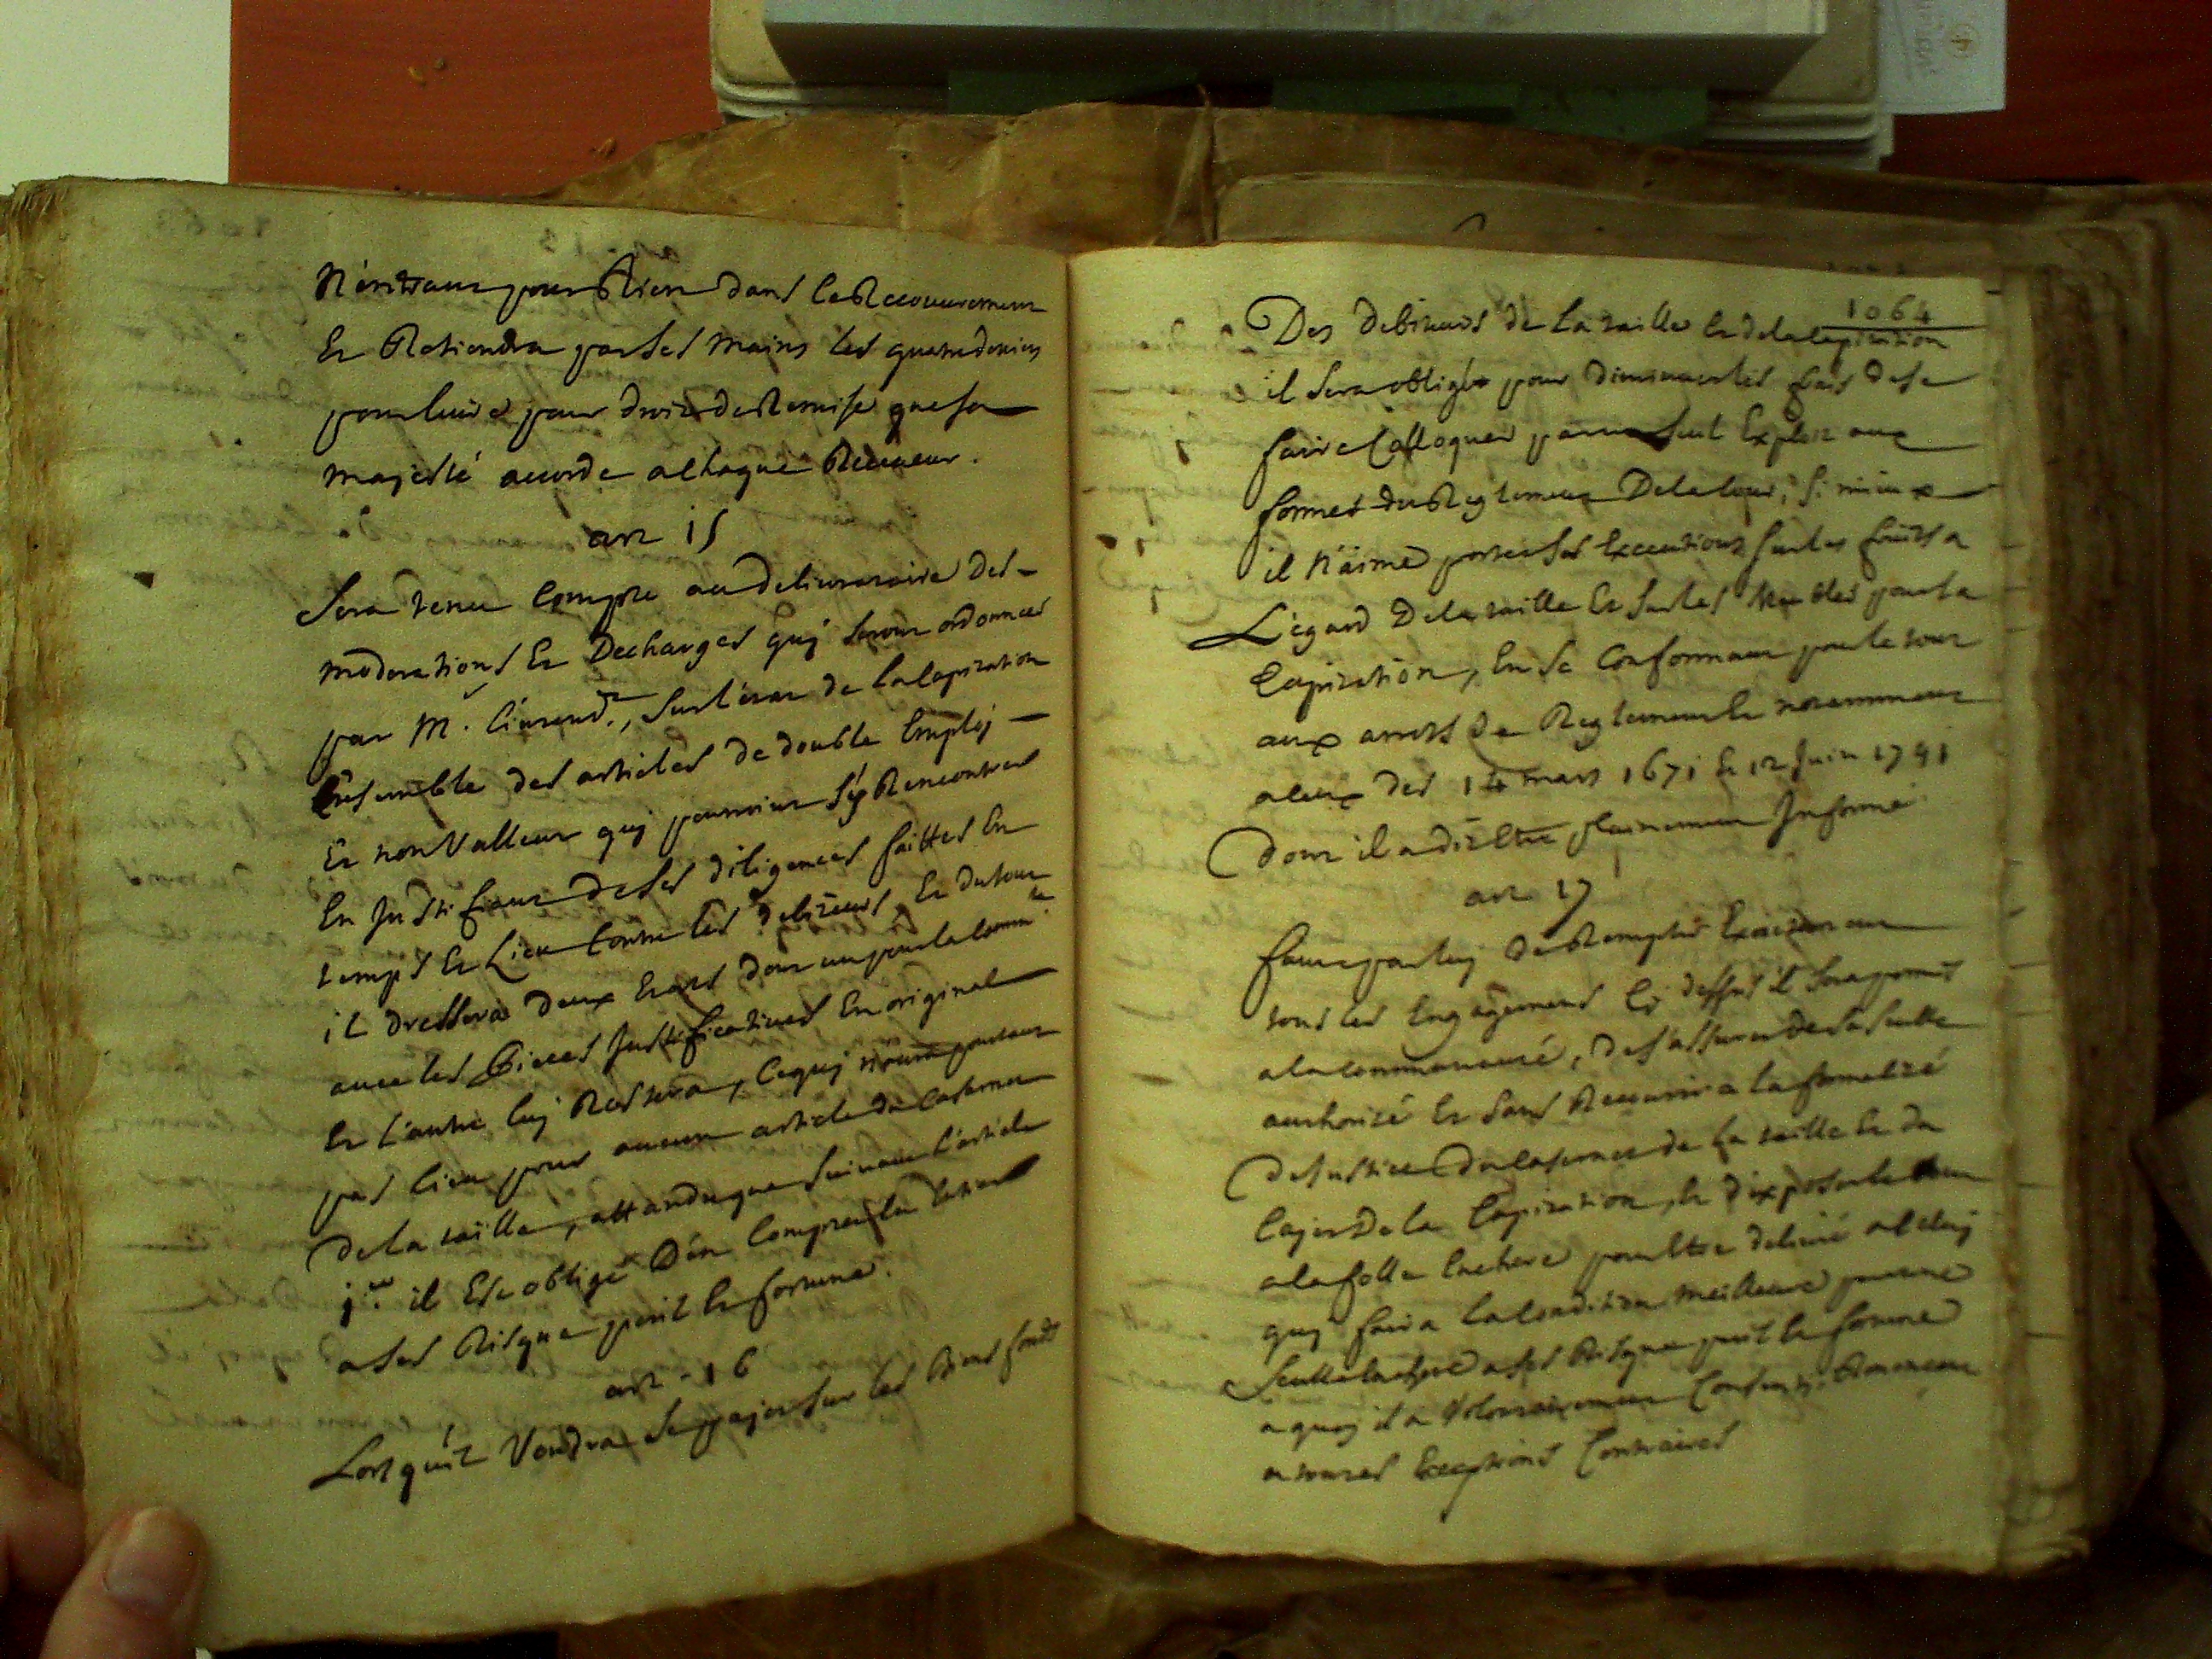 N'entrant pour Rien dans le Recouvrement
Et Retiendra par ses mains les quatre deniers
pour livre pour droit de Remise que sa
majesté accorde a chaque Receveur.
art 15
Sera tenu Compte au delivrataire des
moderations Et Decharges quj seront ordonnées
par M. l'intendt., sur l'état de la Capitation
Ensemble des articles de double Employ
Et non Valleur quj pourroint s'y Rencontrer
En Justifiant de ses diligences faittes En
temps Et Lieu Contre les debiteurs, Et du tout
il dressera deux Etats dont un pour la Commté
avec les Pieces Justificatives En original
Et l'autre luj Restera, Cequj n'aura pourtant
pas lieu pour aucun article de
De la taille, attandu que suivant l'article
1er il Est obligé D'en Compter
a ses Risque peril Et fortune.
art - 16
Lors qu'il Voudra se payer sur les biens fonds
1064
Des debiteurs de la taille Et de la Capitation
il sera obligé pour diminuer les frais de se
faire Colloquer par un seul Exploit aux
formes du Reglement De la Cour, si mieux
il N'aime porter ses Executions sur les fruits a
L'egard De la taille Et sur les Meubles pour la
Capitation, En se Conformant pour le tout
aux arrets de Reglement Et notamment
a Ceux des 14 mars 1671 Et 12 Juin 1741
Dont il a dit Etre plainement Informé
art 17
faute par luj De Remplir Exactement
tous les Engagemens Cy dessus il sera permis
a la communauté, De s'assurer de sa seulle
authorité Et sans Recourir a la formalité
De Justice De la levée de la taille Et du
Cayer De la Capitation, Et d'exposer le tout
a la folle Enchere pour Etre delivré a Celuj
quj faira la Condition Meilleure par une
Seulle Enchere a ses Risque peril Et fortune
a quoy il a Volontairement Consenti Renoncant
a toutes Exceptions Contraires